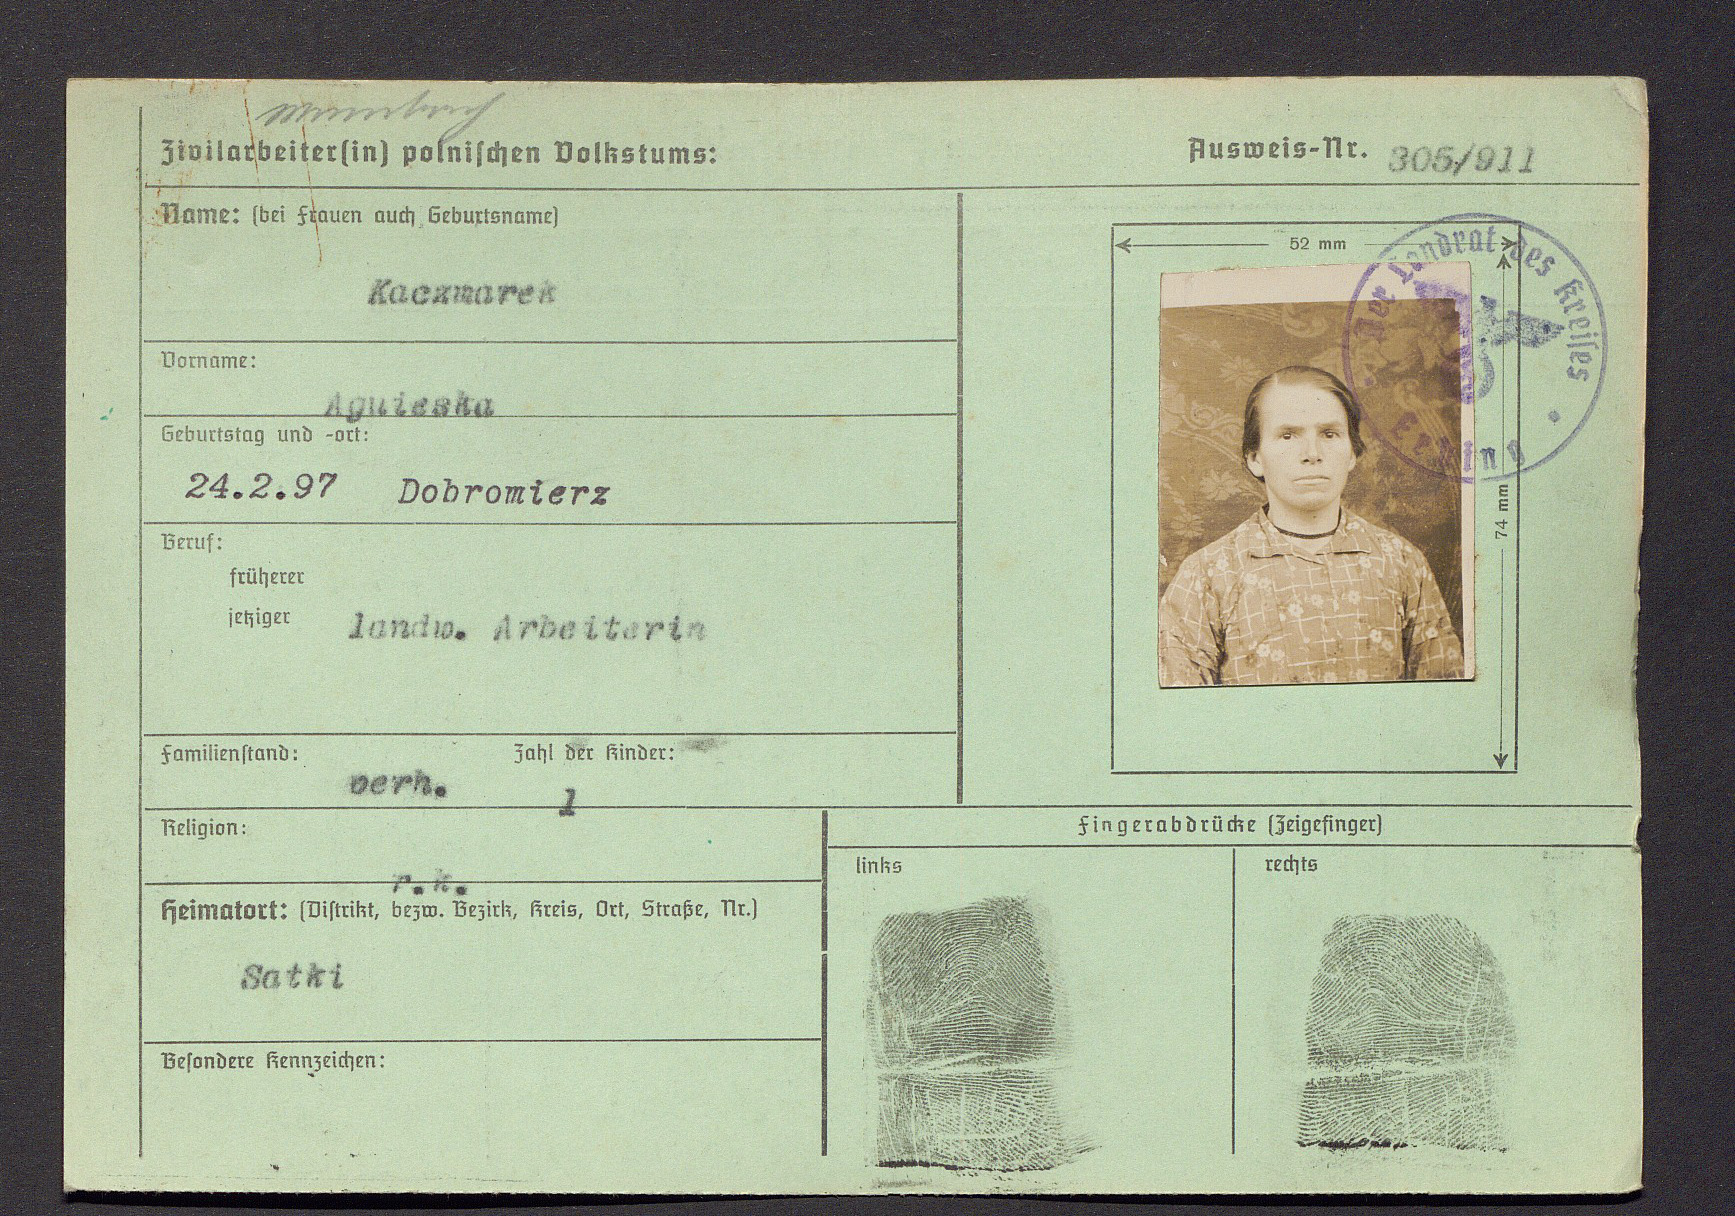 Zivilarbeiter(in) polnischen Volkstums:
Ausweis-Nr. 305/911
Name: (bei Frauen auch Geburtsname)
Kaczmarek
Vorname:
Agnieska
Geburtstag und -ort:
24.2.97 Dobromierz
Beruf:
früherer
jetziger landw. Arbeiterin
Familienstand: Zahl der Kinder:
verh. 1
Religion:
r.k.
Heimatort: (Distrikt, bezw. Bezirk, Kreis, Ort, Straße, Nr.)
Satki
Besondere Kennzeichen:
52 mm
74 mm
Der Landrat des Kreises
Elbing
Fingerabdrücke (Zeigefinger)
links rechts